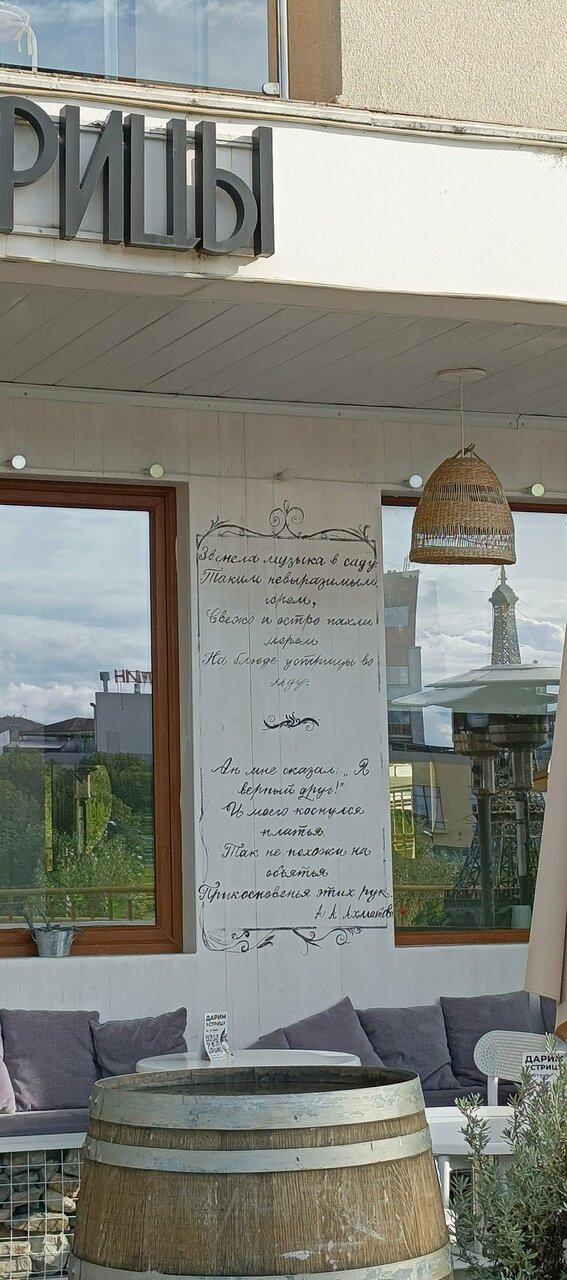 РИЦЫ
Звенела музыка в саду
Таким невыразимым
горем,
Свежо и остро пахли
морем
На блюде устрицы во
льду.
Он мне сказал: „Я
верный друг!"
И моего коснулся
платья.
Так не похожи на
объятья
Прикосновенья этих рук.
А. А. Ахматова
ДАРИМ
УСТРИЦУ
ДАРИМ
УСТРИЦУ